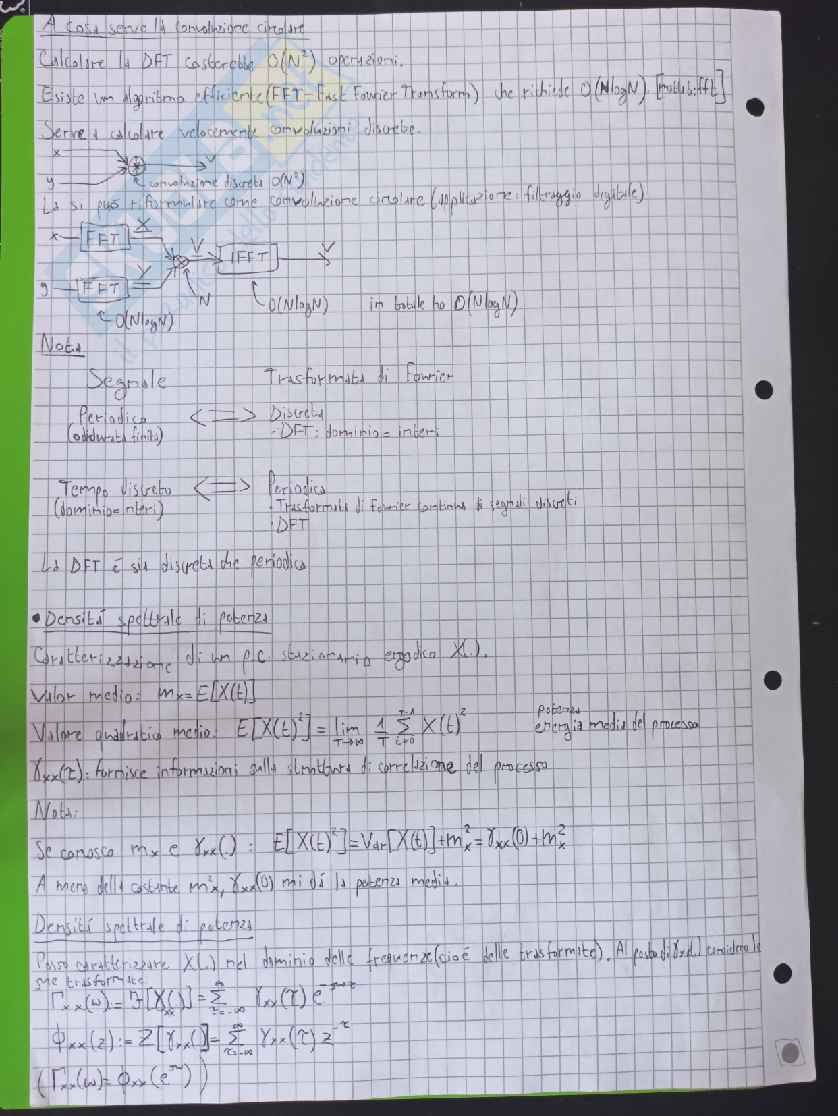 A cosa serve la convoluzione circolare
Calcolare la DFT costerebbe O(N²) operazioni.
Esiste un algoritmo efficiente (FFT-Fast Fourier Transform) che richiede O(NlogN). [matlab: fft]
Serve a calcolare velocemente convoluzioni discrete.
x
v
y
convoluzione discreta O(N²)
La si può riformulare come convoluzione circolare (applicazione: filtraggio digitale)
x FFT X
V IFFT v
y FFT Y
N
O(NlogN) O(NlogN) in totale ho O(NlogN)
Nota
Segnale Trasformata di Fourier
Periodico <=> Discreta
(o durata finita) · DFT: dominio = interi
Tempo discreto <=> Periodica
(dominio=interi) · Trasformata di Fourier continua di segnali discreti
· DFT
La DFT è sia discreta che periodica
• Densità spettrale di potenza
Caratterizzazione di un p.c. stazionario ergodico X(.).
Valor medio: mx=E[X(t)]
Valore quadratico medio: E[X(t)²]=lim T→∞ 1/T Σ X(t)² potenza
energia media del processo
γxx(τ): fornisce informazioni sulla struttura di correlazione del processo
Nota:
Se conosco mx e γxx(): E[X(t)²]=Var[X(t)]+mx²=γxx(0)+mx²
A meno della costante mx², γxx(0) mi dà la potenza media.
Densità spettrale di potenza
Posso caratterizzare X(.) nel dominio delle frequenze (cioè delle trasformate). Al posto di γxx(.) considero le
sue trasformate
Γxx(ω)=F[γxx()]=Σ τ=-∞ ∞ γxx(τ) e^-jωτ
φxx(z):=Z[γxx()]=Σ τ=-∞ ∞ γxx(τ) z^-τ
(Γxx(ω)=φxx(e^jω))